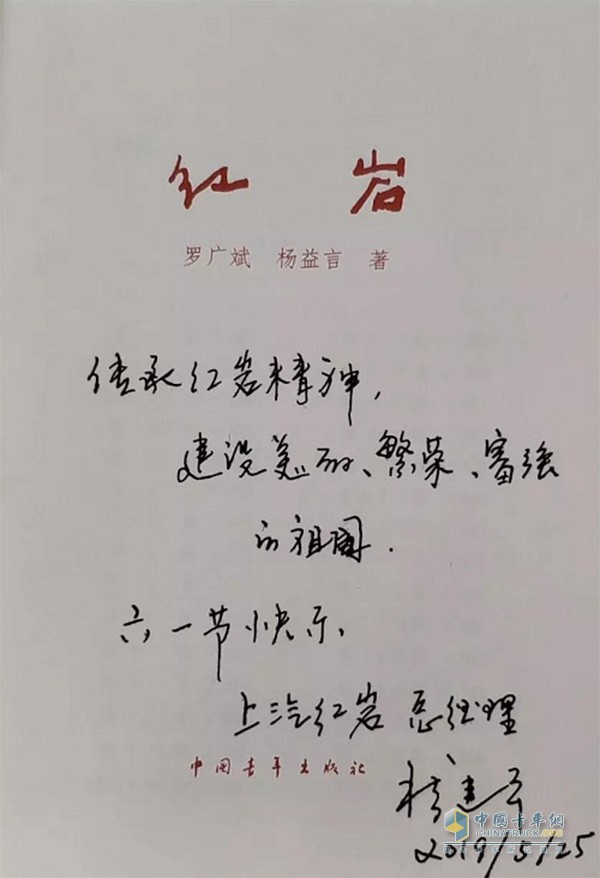 红 岩
罗广斌 杨益言 著
传承红岩精神，
建设美丽、繁荣、富强
的祖国.
六一节快乐、
上汽红岩 总经理
中国青年出版社
楼建平
中国卡车网
CHINATRUCK.ORG
2019/5/25